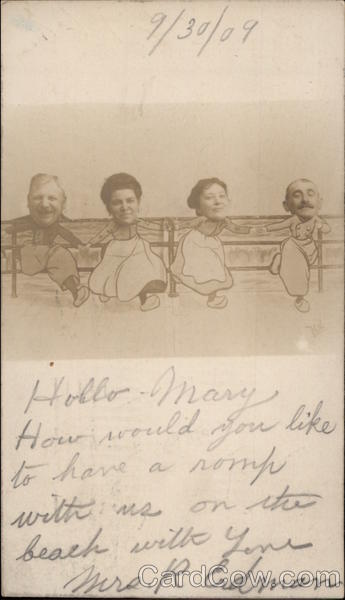 9/30/09
Hollo Mary
How would you like
to have a romp
with us on the
beach with Love
Mrs R
CardCow.com